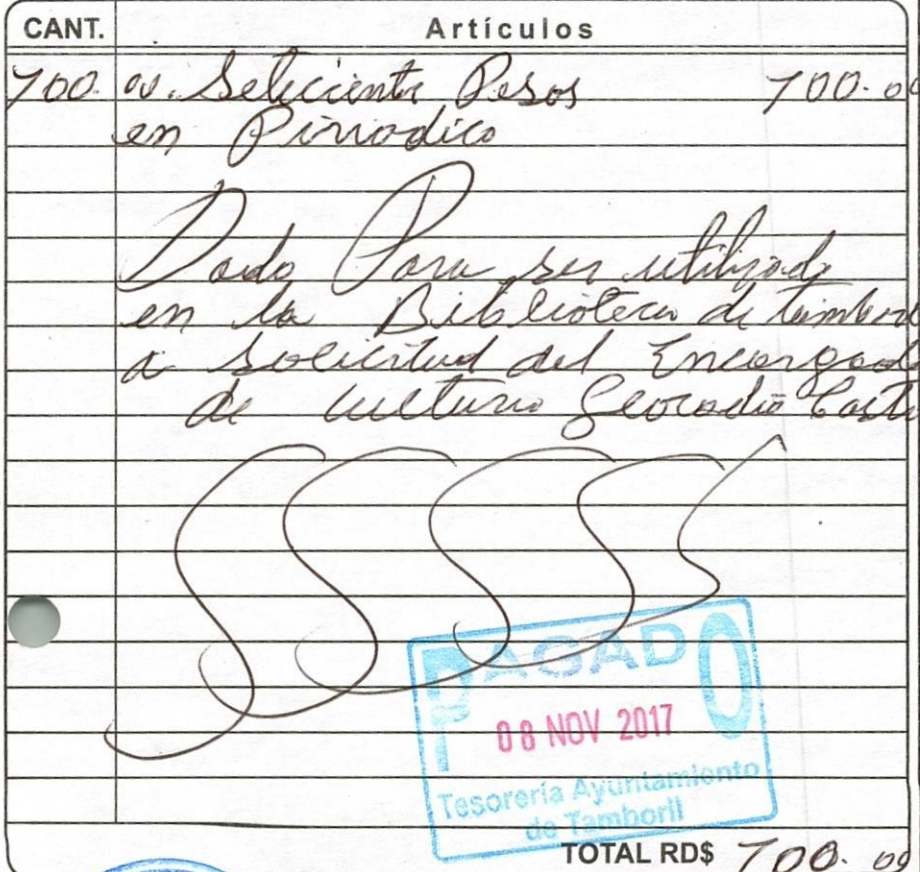 CANT. Artículos
700. 00. Seteciento Pesos 700.00
en Piriodico
Dado Para ser utilizado
en la Biblioteca de tambor
a Solicitud del Encargad
de Cultura Leocadio Casti
PAGADO
08 NOV 2017
Tesorería Ayuntamiento
de Tamboril
TOTAL RD$ 700.00